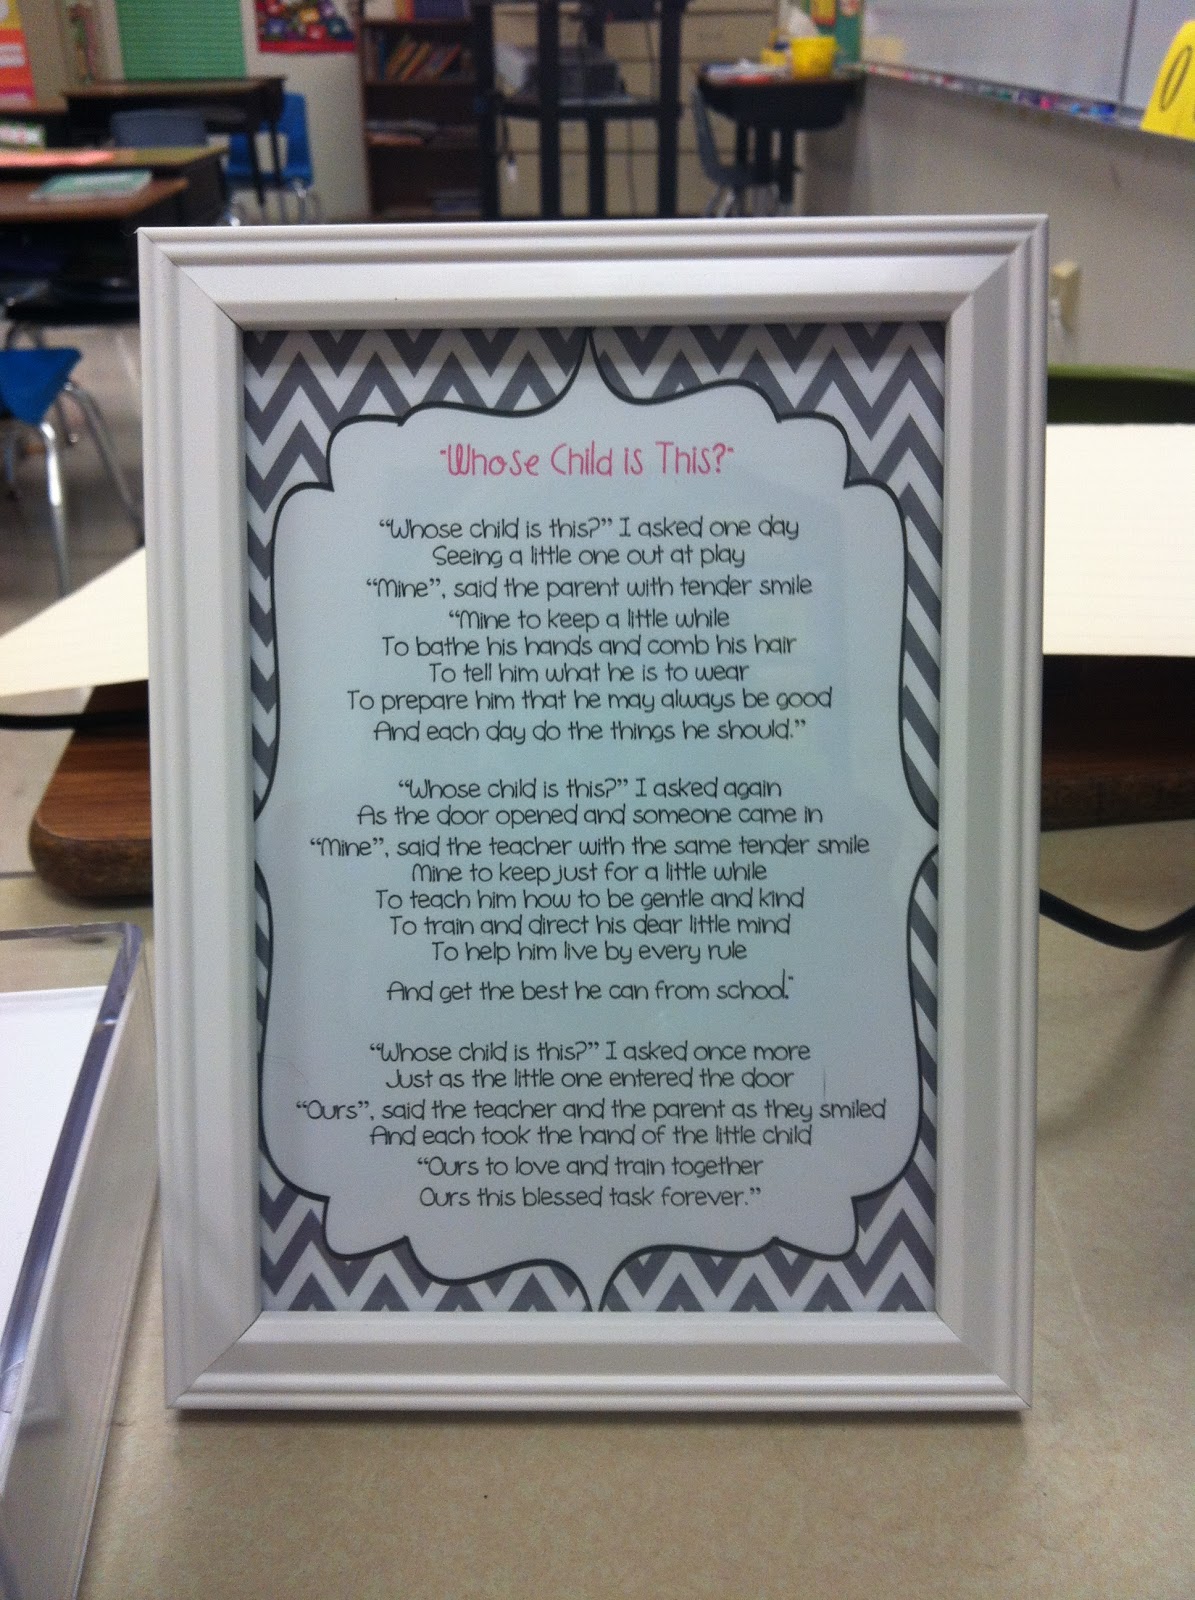 "Whose Child is This?"
“Whose child is this?” I asked one day
Seeing a little one out at play
“Mine”, said the parent with tender smile
“Mine to keep a little while
To bathe his hands and comb his hair
To tell him what he is to wear
To prepare him that he may always be good
And each day do the things he should.”
“Whose child is this?” I asked again
As the door opened and someone came in
“Mine”, said the teacher with the same tender smile
Mine to keep just for a little while
To teach him how to be gentle and kind
To train and direct his dear little mind
To help him live by every rule
And get the best he can from school."
“Whose child is this?” I asked once more
Just as the little one entered the door
“Ours”, said the teacher and the parent as they smiled
And each took the hand of the little child
“Ours to love and train together
Ours this blessed task forever.”